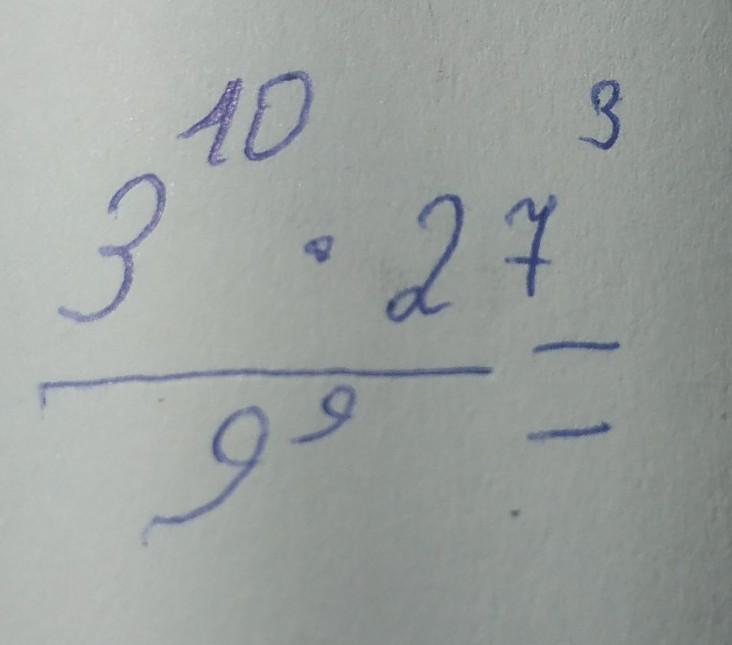 3¹⁰ · 27³
9⁹ =